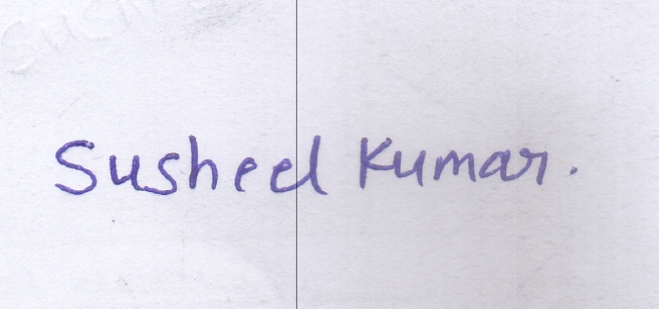 Susheel Kumar.